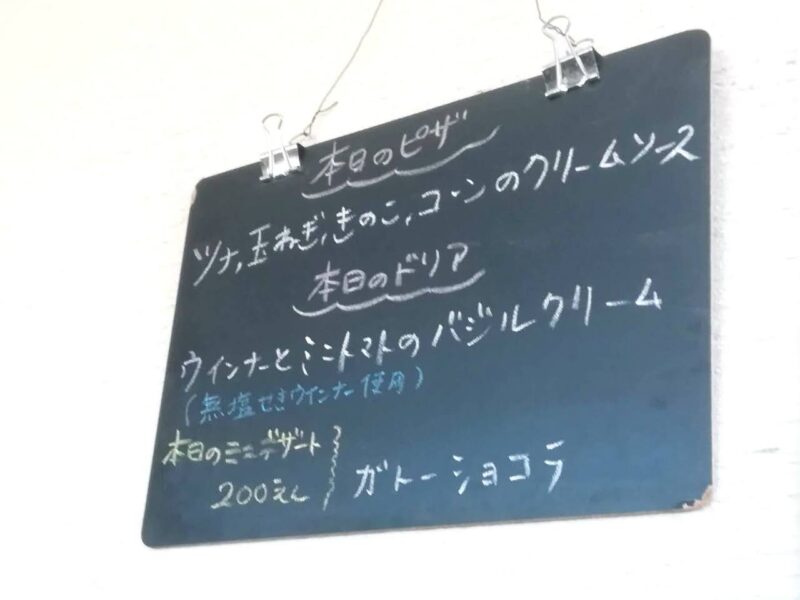 本日のピザ
ツナ,玉ねぎ,きのこ,コーンのクリームソース
本日のドリア
ウインナーとミニトマトのバジルクリーム
(無塩せきウインナー使用)
本日のミニデザート
200えん
ガトーショコラ